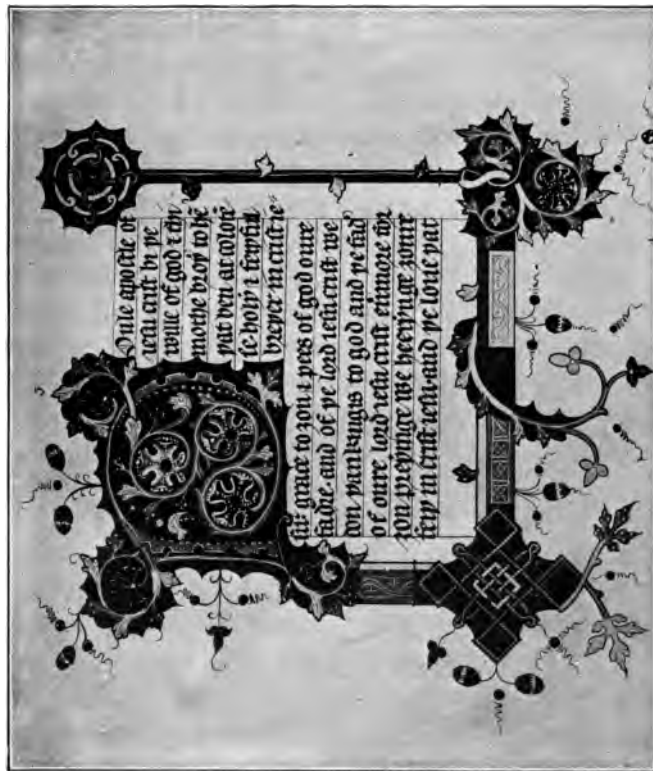 Poule apostle of
iesu crist bi þe
wille of god ⁊ thi
mothe broþ̛ to hē
þat ben at colose
se hooly ⁊ feiþful
breþer in crist ie
su: grace to ȝou ⁊ pees of god oure
fadir. and of þe lord iesu crist we
don þankyngis to god and þe fad̛
of oure lord iesu crist euermore for
ȝou preiynge we heerynge ȝoure
feiþ in crist iesu. and þe loue þat